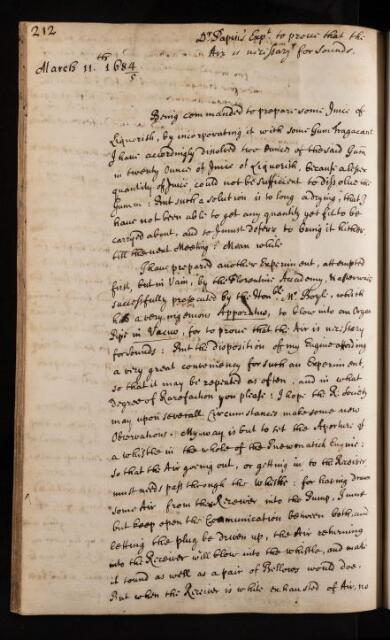 212
Dr. Papins Expt. to prove that the
Air is necessary for sounds.
March 11.th 1684/5
Being commanded to prepare some Juice of
Liquorish, by incorporating it with some Gum Tragacant
I have accordingly dissolved two ounces of the said Gum
in twenty ounces of Juice of Liquorish, because a lesser
quantity of Juice, could not be sufficient to dissolve the
Gumm: But such a solution is so long a drying, that I
have not been able to get any quantity yet fit to be
carryed about, and so I must deferr to bring it hither,
till the next Meeting: Mean while
I have prepared another Experiment, attempted
first, but in Vain, by the Florentine Academy, & afterwards
successfully prosecuted by the Honble. Mr. Boyle, which
has a very ingenious Apparatus, to blow into an Organ
Pipe in Vacuo, for to prove that the Air is necessary
for sounds: But the disposition of my Engine affording
a very great conveniency for such an Experiment,
so that it may be repeated as often, and in what
Degree of Rarefaction you please: I hope the R: Society
may upon severall Circumstances make some new
Observations: My way is but to set the Aperture of
a whistle in the whole of the Pneumatick Engine:
so that the Air going out, or getting in to the Receiver
must needs pass through the whistle: for having drawn
some Air from the Receiver into the Pump, I must
but keep open the Communication between both, and
letting the plug be driven up, the Air returning
into the Receiver will blow into the whistle, and make
it sound as well as a pair of Bellows would doe.
But when the Receiver is while exhausted of Air, no